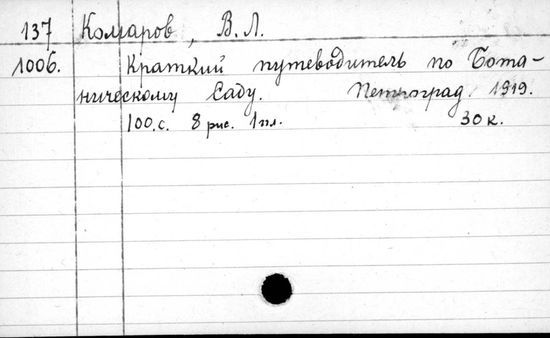 137 Комаров, В.Л.
1006. Краткий путеводитель по Бота-
ническому Саду. Петроград. 1919.
100.с. 8 рис. 1 пл. 30 к.